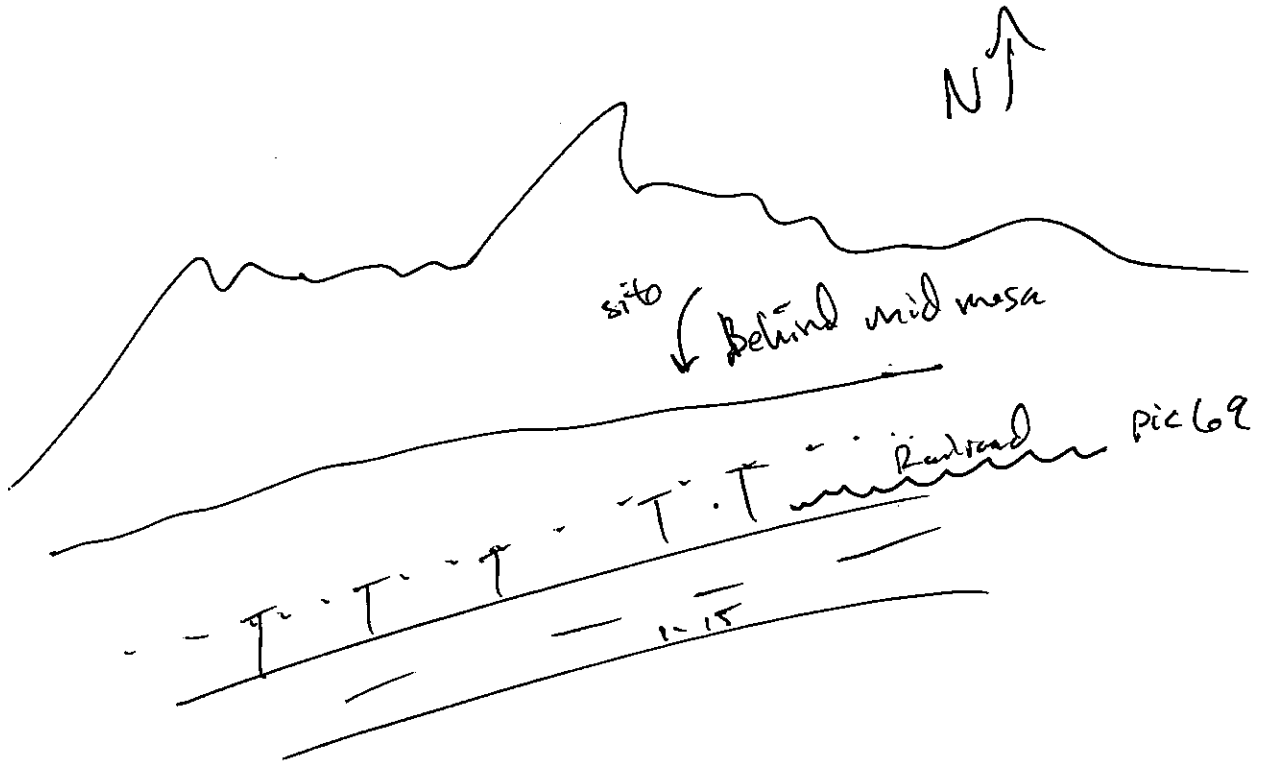 N
site
Behind mid mesa
Railroad
pic 69
I-15